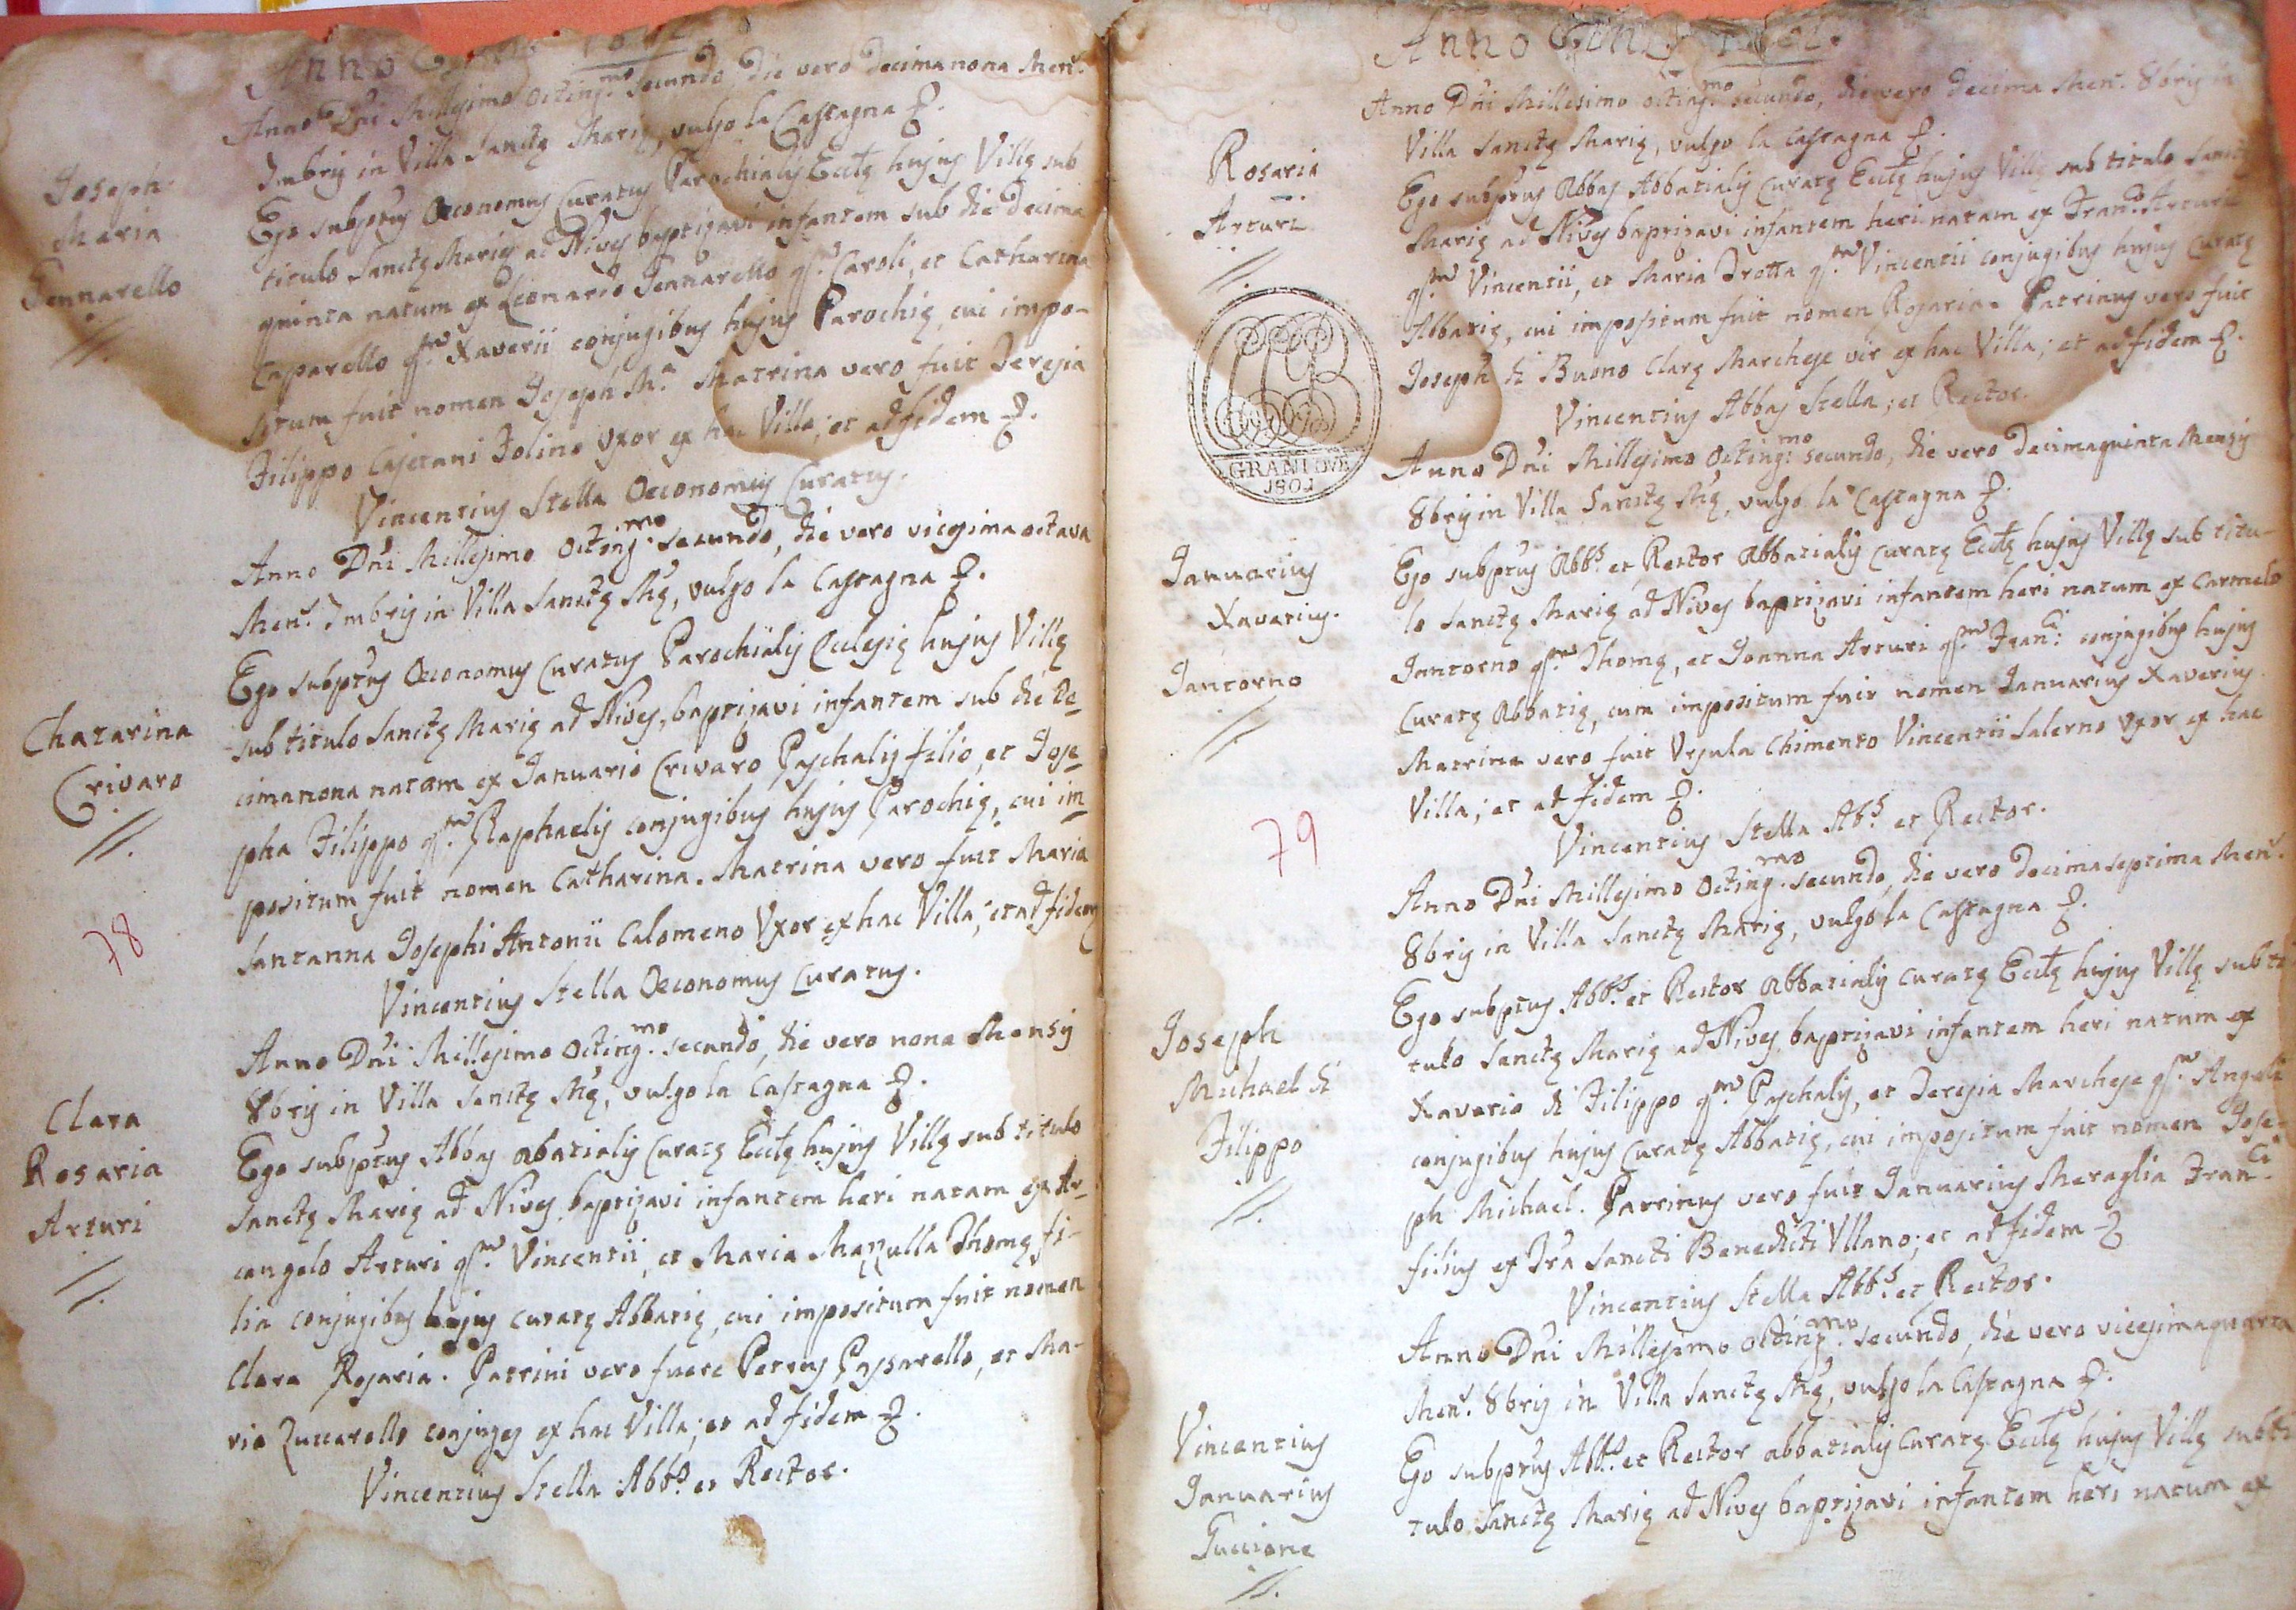 Anno
Anno Dñi Millesimo Octing.mo secundo, die vero decimanona Men.s
Imbris in Villa Sanctę Marię, vulgo la Castagna &.
Joseph
Maria
Gennarello
Ego subptus Oeconomus Curatus Parochialis Ecclę hujus Villę sub
titulo Sanctę Marię ad Nives baptizavi infantem sub die decima
quinta natum ex Leonardo Jennarello qm. Caroli, et Catharina
Caparello qm. Xaverii conjugibus hujus Parochię, cui impo-
situm fuit nomen Joseph M.a Matrina vero fuit Teresia
Filippo Cajetani Folino Uxor ex hac Villa; et ad fidem &.
Vincentius Stella Oeconomus Curatus.
Anno Dñi Millesimo Octing.mo secundo, die vero vicesima octava
Men.s Imbris in Villa Sanctę Mę, vulgo la Castagna &.
Chatarina
Crivaro
Ego subptus Oeconomus Curatus Parochialis Ecclesię hujus Villę
sub titulo Sanctę Marię ad Nives, baptizavi infantem sub die De
cimanona natam ex Januario Crivaro Paschalis filio, et Jose
pha Filippo qm. Raphaelis conjugibus hujus Parochię, cui im
positum fuit nomen Catharina. Matrina vero fuit Maria
Santanna Josephi Antonii Calomeno Uxor ex hac Villa; et ad fidem
Vincentius Stella Oeconomus Curatus.
78
Anno Dñi Millesimo Octing.mo secundo, die vero nona Mensis
8bris in Villa Sanctę Mę, vulgo la Castagna &.
Clara
Rosaria
Arturi
Ego subptus Abbas abatialis Curatę Ecclę hujus Villę sub titulo
Sanctę Marię ad Nives baptizavi infantem heri natam ex Ar
cangelo Arturi qm. Vincentii, et Maria Mazzulla Thomę fi-
lia conjugibus hujus Curatę Abbatię, cui impositum fuit nomen
Clara Rosaria. Patrini vero fuere Petrus Passarello, et Ma-
ria Zuccarello conjuges ex hac Villa; et ad fidem &.
Vincentius Stella Abb.s et Rector.
Anno
Anno Dñi Millesimo octing.mo secundo, die vero decima Men.s 8bris in
Villa Sanctę Marię, vulgo la Castagna &.
Rosaria
Arturi
Ego subptus Abbas Abbatialis Curatę Ecclę hujus Villę sub titulo Sanctę
Marię ad Nives baptizavi infantem heri natam ex Fran.o Arturi
qm. Vincentii, et Maria Trotta qm. Vincentii conjugibus hujus Curatę
Abbatię, cui impositum fuit nomen Rosaria. Patrinus vero fuit
Joseph di Buono Clarę Marchese vir ex hac Villa; et ad fidem &.
Vincentius Abbas Stella, et Rector.
GRANI DVE
1802
Anno Dñi Millesimo Octing.mo secundo, die vero Decimaquinta Mensis
8bris in Villa Sanctę Mę, vulgo la Castagna &.
Januarius
Xaverius.
Jantorno
Ego subptus Abb.s et Rector Abbatialis Curatę Ecclę hujus Villę sub titu-
lo Sanctę Marię ad Nives baptizavi infantem heri natum ex Carmelo
Jantorno qm. Thomę, et Joanna Arturi qm. Fran.ci conjugibus hujus
Curatę Abbatię, cum impositum fuit nomen Januarius Xaverius.
Matrina vero fuit Ursula Chimento Vincentii Salerno Uxor ex hac
Villa; et ad fidem &.
Vincentius Stella Ab.s et Rector.
79
Anno Dñi Millesimo Octing.mo secundo, die vero decimaseptima Men.s
8bris in Villa Sanctę Marię, vulgo la Castagna &.
Joseph
Michael di
Filippo
Ego subptus Abb.s et Rector Abbatialis Curatę Ecclę hujus Villę sub ti
tulo Sanctę Marię ad Nives baptizavi infantem heri natum ex
Xaverio di Filippo qm. Paschalis, et Teresia Marchese qm. Angeli
conjugibus hujus Curatę Abbatię, cui impositum fuit nomen Jose-
ph Michael. Patrinus vero fuit Januarius Meraglia Fran.ci
filius ex Tra Sancti Benedicti Ullano; et ad fidem &
Vincentius Stella Abb.s et Rector.
Anno Dñi Millesimo octing.mo secundo, die vero vicesimaquarta
Men.s 8bris in Villa Sanctę Mę, vulgo la Castagna &.
Vincentius
Januarius
Guccione
Ego subptus Abb.s et Rector abbatialis Curatę Ecclę hujus Villę sub ti
tulo Sanctę Marię ad Nives baptizavi infantem heri natum ex